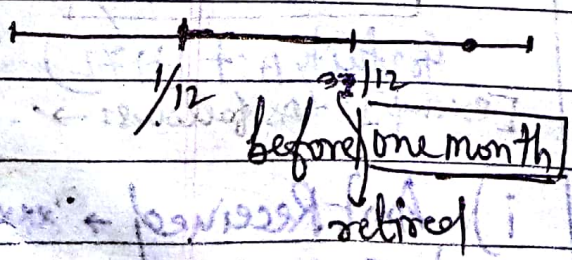 1/12 31/12
before one month
retired